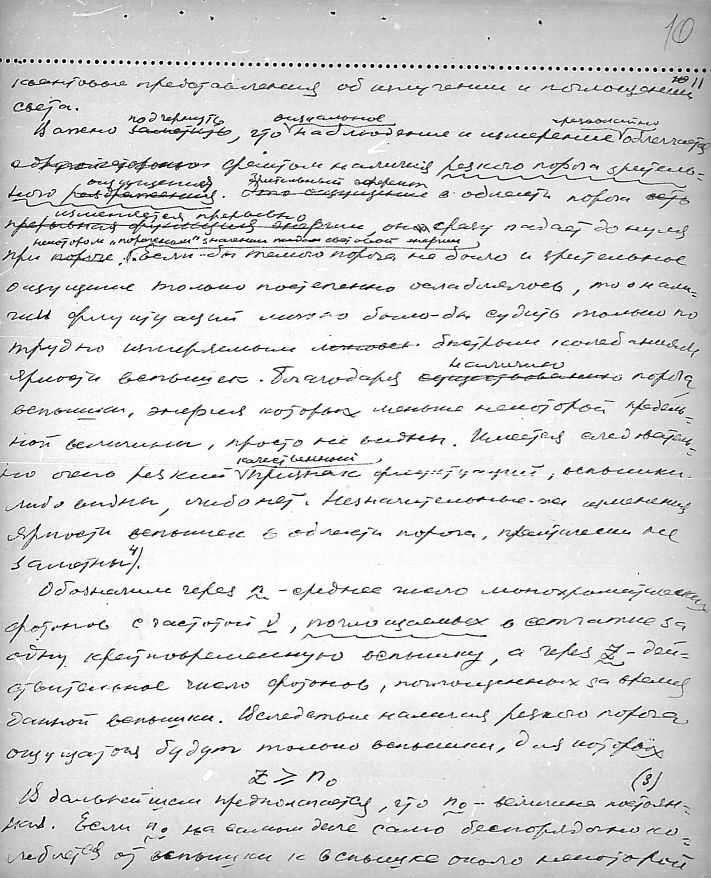 10
11
квантовые представления об излучении и поглощении
света.
подчеркнуть визуальное
Важно заметить, что наблюдение и измерение облегчается
фактом наличия резкого порога зритель-
ощущения зрительный эффект
ного раздражения. Это ощущение в области порога есть
изменяется прерывно
прерывная функция энергии, он сразу падает до нуля
некотором „пороговом" значении световой энергии
при пороге. Если-бы такого порога не было и зрительное
ощущение только постепенно ослаблялось, то о нали-
чии флуктуаций можно было-бы судить только по
трудно измеряемым быстрым колебаниям
наличию
яркости вспышек. Благодаря существованию порога,
вспышки, энергия которых меньше некоторой предель-
ной величины, просто не видны. Имеется следователь-
качественный
но очень резкий признак флуктуаций, вспышки
либо видны, либо нет. Незначительные-же изменения
яркости вспышек в области порога, практически не
заметны4).
Обозначим через n - среднее число монохроматических
фотонов с частотой ν, поглощаемых в сетчатке за
одну кратковременную вспышку, а через Z - дей-
ствительное число фотонов, поглощенных за время
данной вспышки. Вследствие наличия резкого порога
ощущаться будут только вспышки, для которых
Z ⩾ n₀ (3)
В дальнейшем предполагается, что n₀ - величина постоян-
ная. Если n₀ на самом деле само беспорядочно ко-
леблется от вспышки к вспышке около некоторой